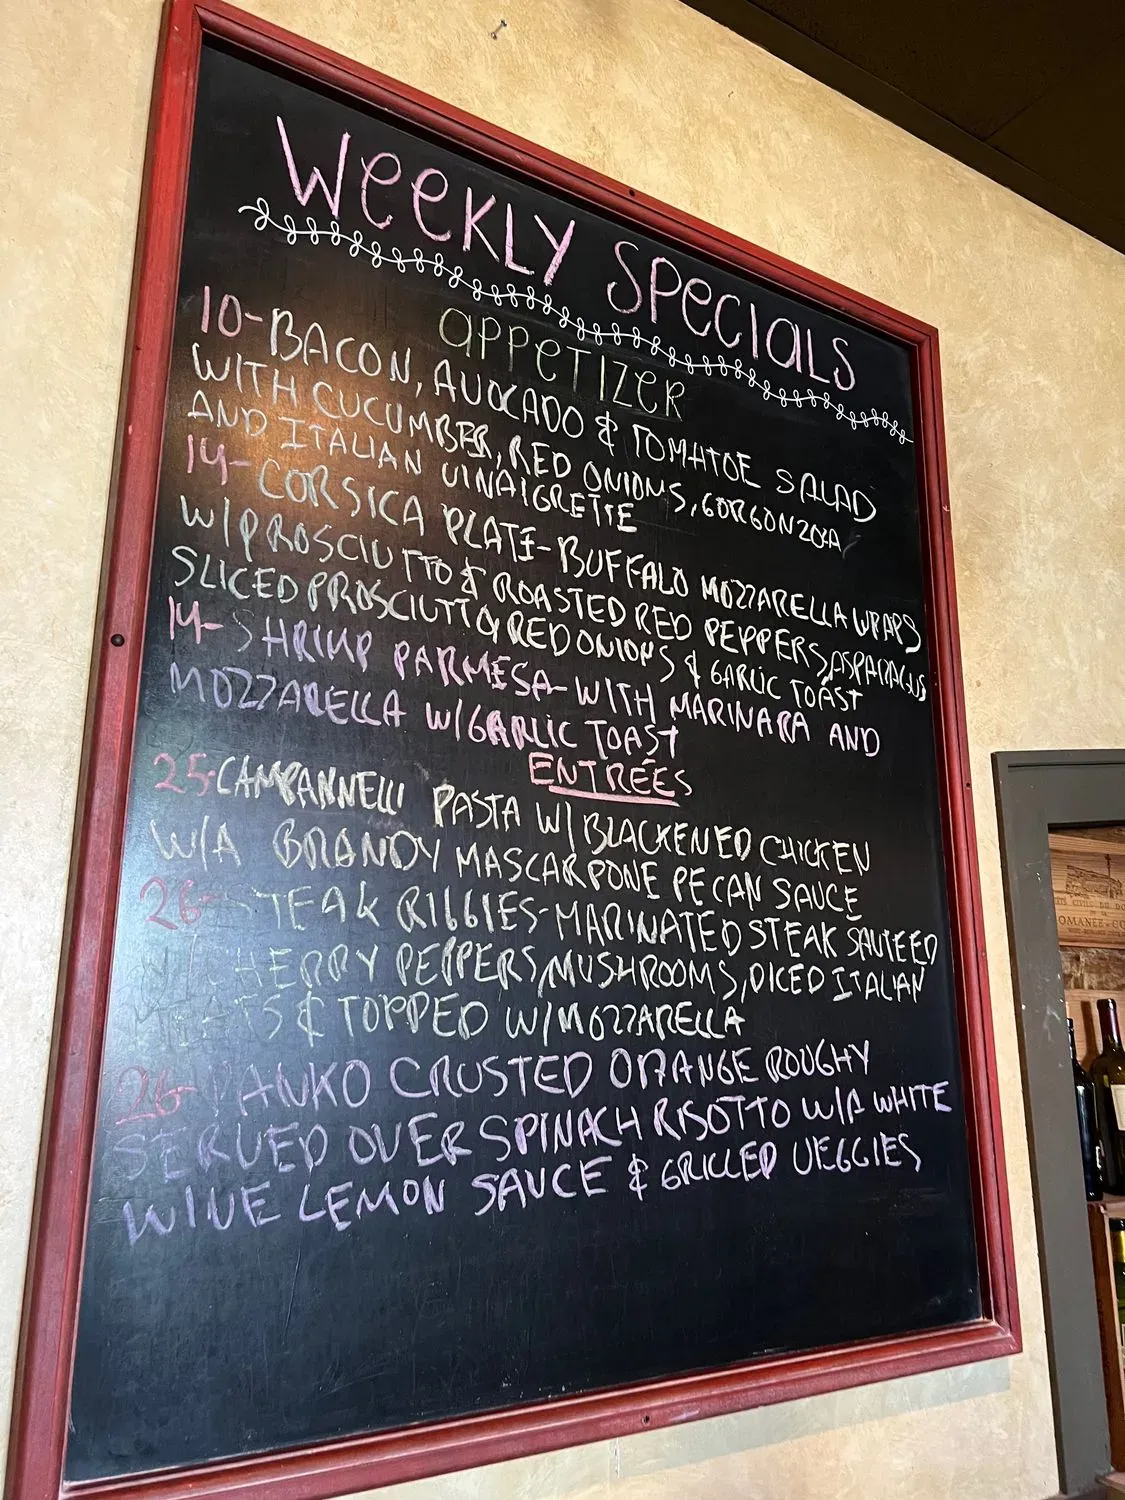 WeeKLY SPeCIaLS
aPPeTIZeR
10-BACON, AVOCADO & TOMATOE SALAD
WITH CUCUMBER, RED ONIONS, GORGONZOLA
AND ITALIAN VINAIGRETTE
14- CORSICA PLATE-BUFFALO MOZZARELLA WRAPS
W/PROSCIUTTO & ROASTED RED PEPPERS, ASPARAGUS
SLICED PROSCIUTTO, RED ONIONS & GARLIC TOAST
14- SHRIMP PARMESA-WITH MARINARA AND
MOZZARELLA W/GARLIC TOAST
ENTRÉES
25-CAMPANNELLI PASTA W/BLACKENED CHICKEN
W/A BRANDY MASCARPONE PECAN SAUCE
26-STEAK RIGGIES-MARINATED STEAK SAUTEED
W/CHERRY PEPPERS, MUSHROOMS, DICED ITALIAN
& TOPPED W/MOZZARELLA
26-PANKO CRUSTED ORANGE ROUGHY
SERVED OVER SPINACH RISOTTO W/A WHITE
WINE LEMON SAUCE & GRILLED VEGGIES